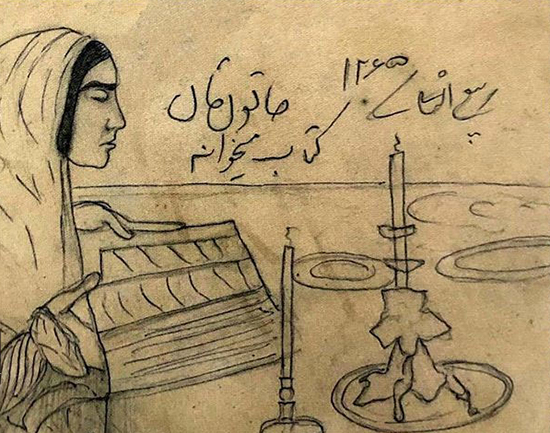 ربیع الثانی ۱۲۶۵
خاتون جان
کتاب میخوانه